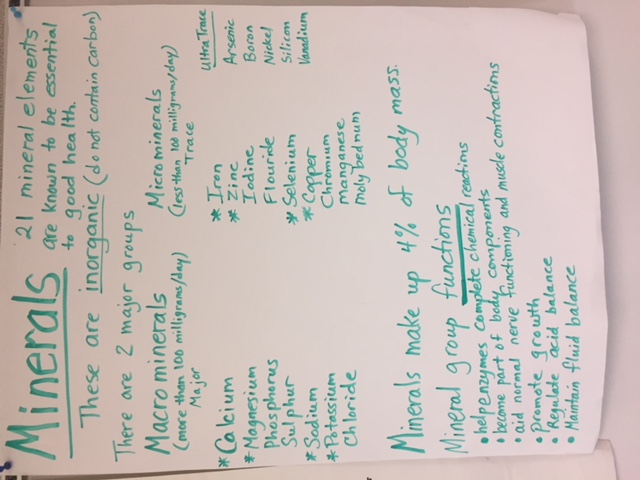 Minerals
21 mineral elements
are known to be essential
to good health.
These are inorganic (do not contain carbon)
There are 2 major groups
Macrominerals
(more than 100 milligrams/day)
Major
* Calcium
* Magnesium
Phosphorus
Sulphur
* Sodium
* Potassium
Chloride
Microminerals
(less than 100 milligrams/day)
Trace
* Iron
* Zinc
Iodine
Flouride
* Selenium
* Copper
Chromium
manganese
molybednum
Ultra Trace
Arsenic
Boron
Nickel
Silicon
Vanadium
Minerals make up 4% of body mass.
Mineral group functions
• help enzymes complete chemical reactions
• become part of body components
• aid normal nerve functioning and muscle contractions
• promote growth
• Regulate acid balance
• Maintain fluid balance